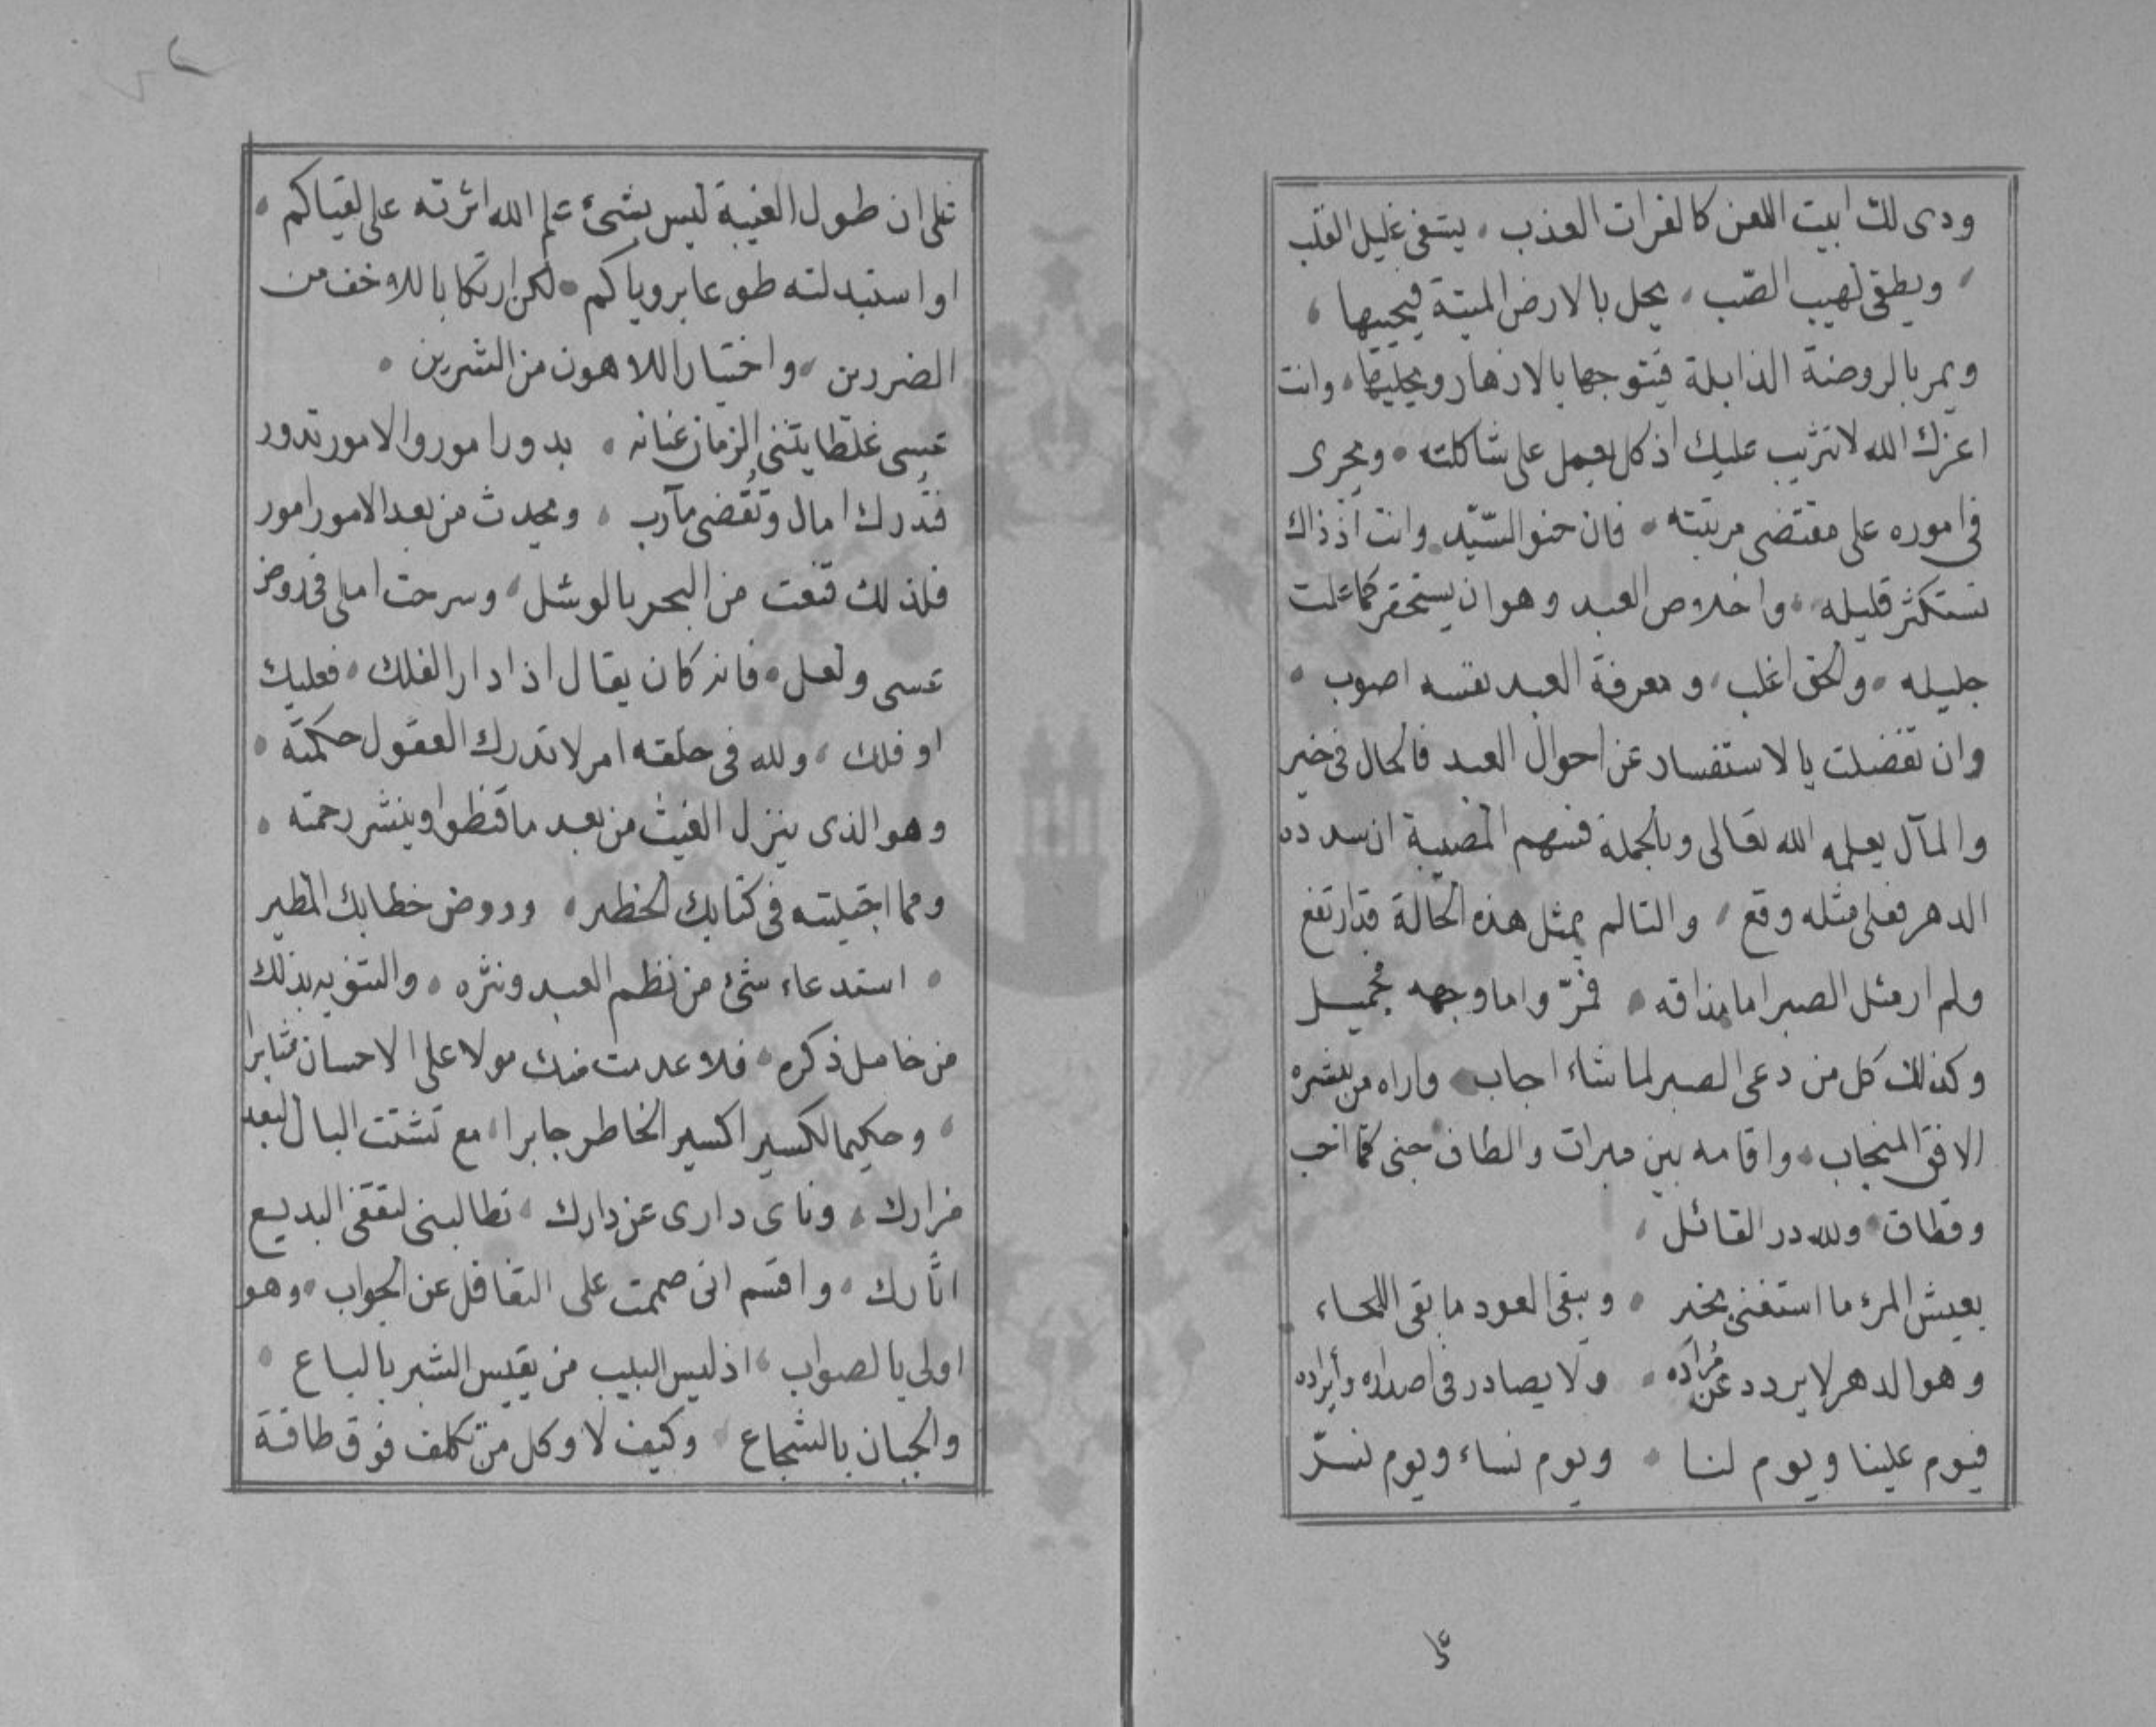 ودى لك ابيت اللعن كالفرات العذب، يشفى غليل القلب
، ويطفى لهيب الصّب، يحل بالارض الميتة فيحييها،
ويمر بالروضة الذابلة فيتوجها بالازهار ويحليها، وانت
اعزك الله لا تثريب عليك اذ كل يعمل على شاكلته، ويجرى
فى اموره على مقتضى مرتبته، فان حنو السّيّد وانت اذ ذاك
تستكثر قليله، واخلاص العبد وهو ان يستحقر كما
جليله، والحق اغلب، ومعرفة العبد نفسه اصوب،
وان تفضلت بالاستفسار عن احوال العبد فالحال فى خير
والمآل يعلمه الله تعالى وبالجملة فسهم المصيبة ان سدده
الدهر فعلى مثله وقع، والتالم بمثل هذه الحالة قد ارتفع
ولم ار مثل الصبر اما مذاقه، فمرّ واما وجهه فجميل
وكذلك كل من دعى الصبر لما شاء اجاب، واراه من بشره
الافق المنجاب، واقامه بين مبرات والطاف جنى
وقطاف، ولله در القائل،
يعيش المرء ما استغنى بخير، ويبقى العود ما بقى اللحاء
وهو الدهر لا يردد عن مُرَاده، ولا يصادر فى اصداره وأيراده
فيوم علينا ويوم لنا، ويوم نساء ويوم نسرّ
كا
على ان طول الغيبة ليس بشئ علم الله اثرته على لقياكم،
او استبدلته طوعا برؤياكم، لكن ارتكابا للاخف من
الضررين، واختيارا للاهون من الشرين،
عسى غلطا يثنى الزمان عنانه، بدور امور والامور تدور
فتُدرك امال وتُقضى مآرب، ويحدث من بعد الامور امور
فلذلك قنعت من البحر بالوشل، وسرحت املى فى روض
عسى ولعل، فانه كان يقال اذا دار الفلك، فعليك
او فلك، ولله فى خلقه امر لا تدرك العقول حكمته،
وهو الذى ينزل الغيث من بعد ما قنطوا وينشر رحمته،
ومما اجتليته فى كتابك الخطير، وروض خطابك المطير
، استدعاء شئ من نظم العبد ونثره، والتنويه بذلك
من خامل ذكره، فلا عدمت منك مولا على الاحسان مثابرا
، وحكيما لكسير اكسير الخاطر جابرا، مع تشتت البال لبعد
مزارك، ونأى دارى عن دارك، تطالبنى لتقفى البديع
اثارك، واقسم انى صممت على التغافل عن الجواب، وهو
اولى بالصواب، اذ ليس البيب من يقيس الشبر بالباع،
والجبان بالشجاع، وكيف لا وكل من تكلف فوق طاقة